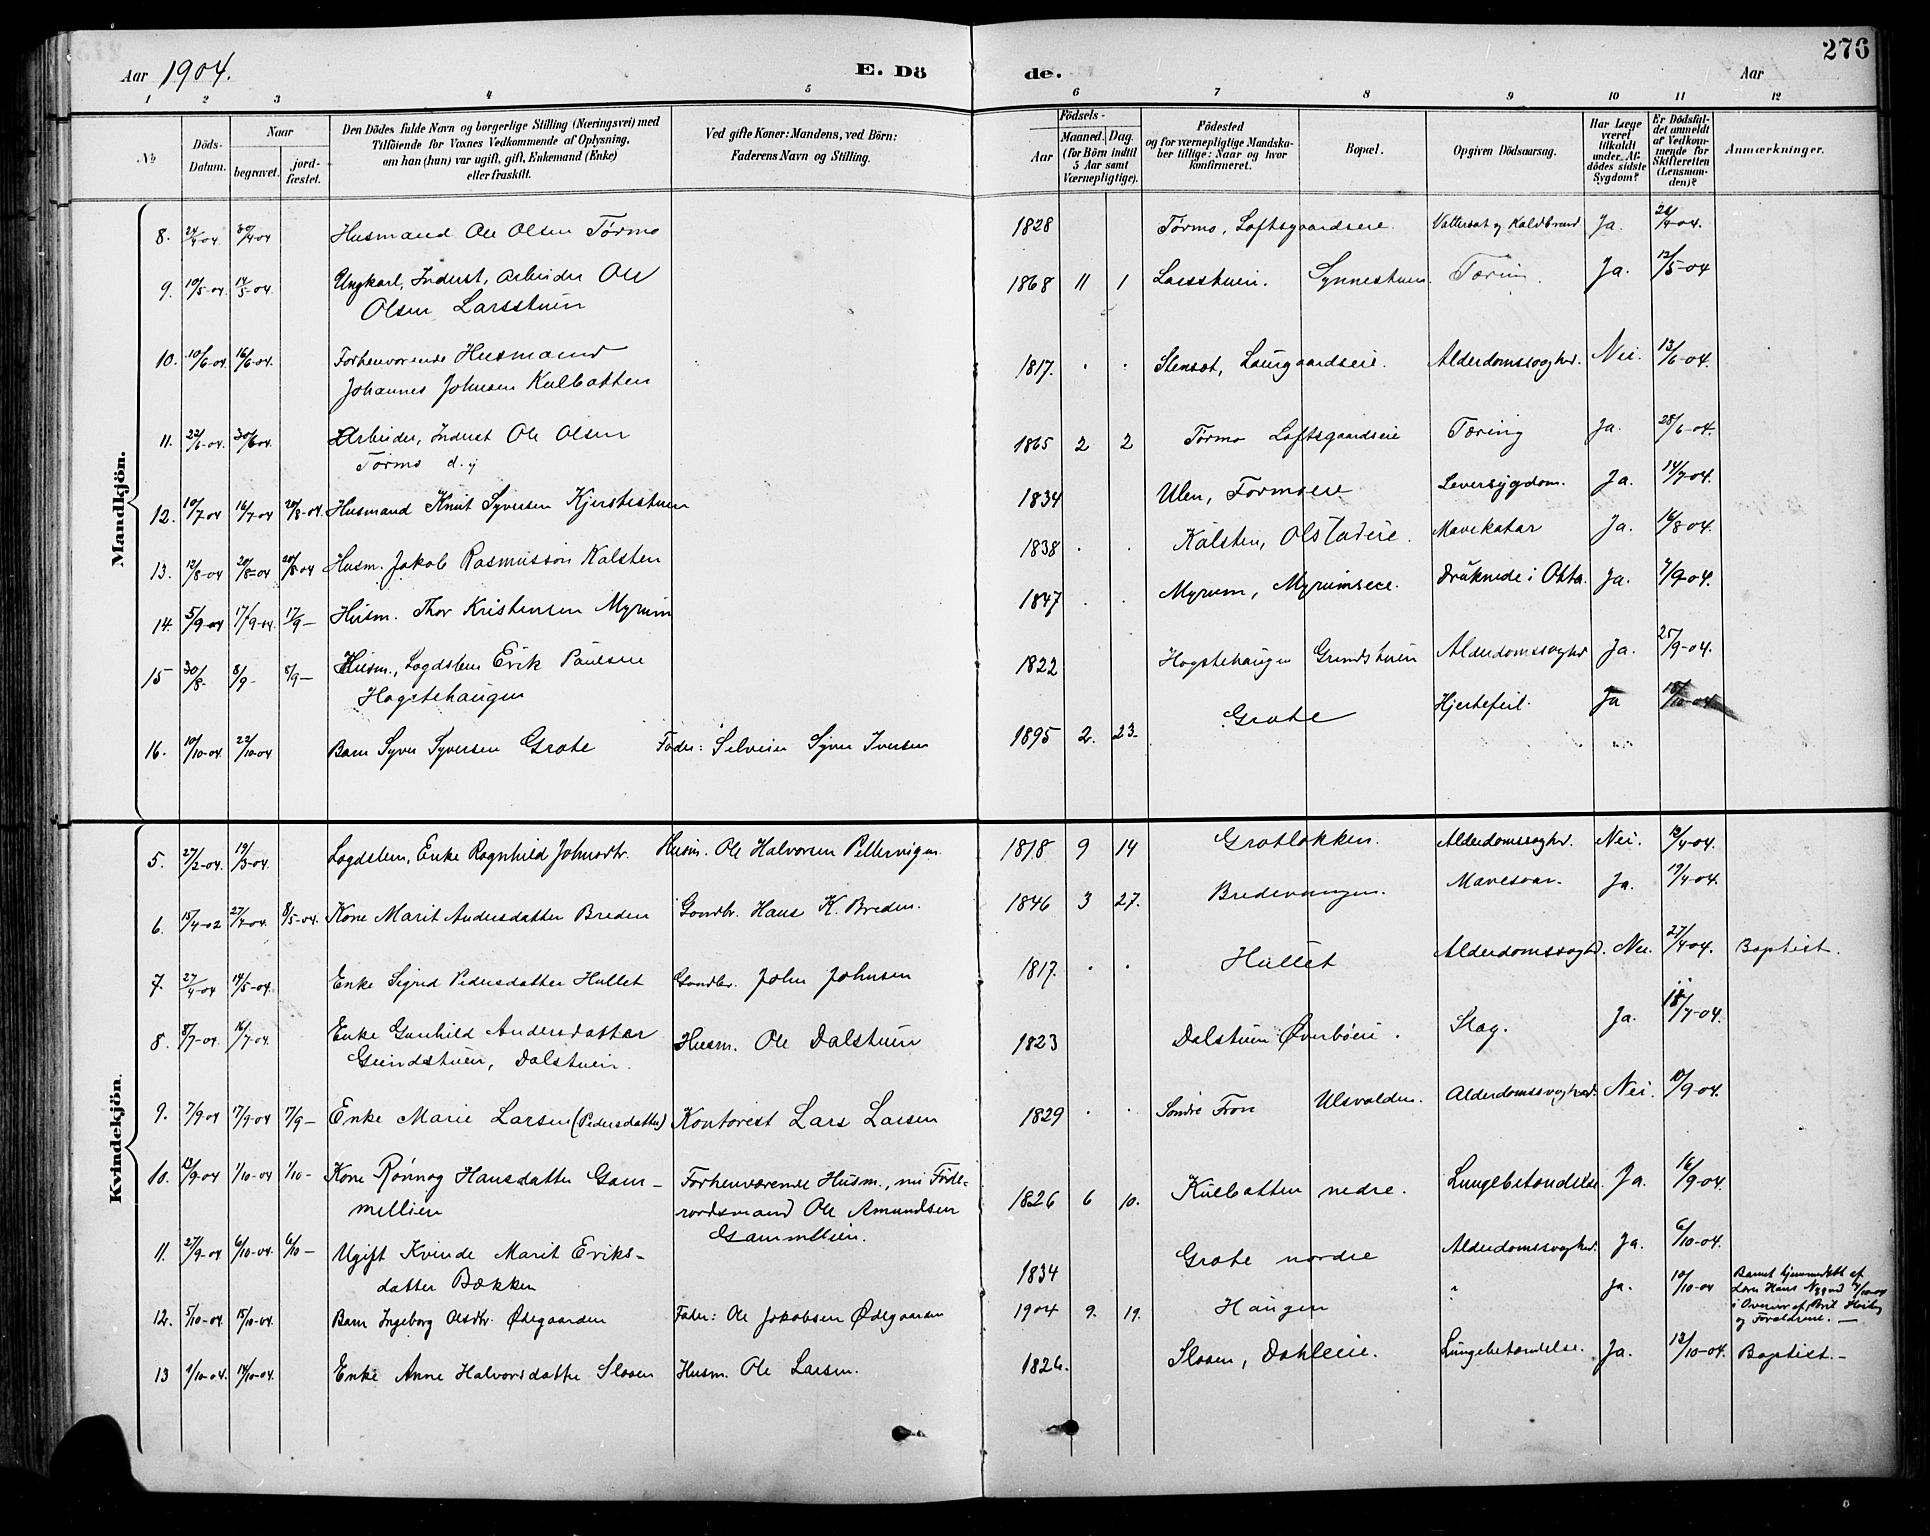 276
Aar 1904. E. Dö de. Aar
1 2 3 4 5 6 7 8 9 10 11 12
No
Döds-
Datum.
Naar
begravet.
jord-
fæstet.
Den Dödes fulde Navn og borgerlige Stilling (Næringsvei) med
Tilföiende for Voxnes Vedkommende af Oplysning,
om han (hun) var ugift, gift, Enkemand (Enke)
eller fraskilt.
Ved gifte Koner: Mandens, ved Börn:
Faderens Navn og Stilling.
Födsels-
Aar
Maaned.
Dag.
(for Börn indtil
5 Aar samt
Værnepligtige).
Födested
og for værnepligtige Mandska-
ber tillige: Naar og hvor
konfirmeret.
Bopæl.
Opgiven Dödsaarsag.
Har Læge
været
tilkaldt
under Af-
dödes sidste
Sygdom?
Er Dödsfal-
det anmeldt
af Vedkom-
mende for
Skifteretten
(Lensman-
den)?
Anmærkninger.
Mandkjön.
8. 24/4-04 30/4-04 Husmand Ole Olsen Tørmo 1828 Tørmo, Loftsgaardseie. Vattersot og Koldbrand Ja. 28/4-04.
9. 10/5-04 14/5-04. Ungkarl, Inderst, Arbeider Ole
Olsen Larsstuen 1868 11 1 Larsstuen. Synnestuen. Tæring. Ja. 12/5-04
10. 10/6-04 16/6-04. Forhenværende Husmand
Johannes Johnsen Kulbotten 1817. Stensæt, Laurgaardseie. Alderdomssvaghed. Nei. 13/6-04.
11. 22/6-04. 30/6-04. Arbeider, Inderst Ole Olsen
Tørmo d. y 1865 2 2 Tørmo Loftsgaardseie Tæring Ja. 28/6-04.
12. 10/7-04 16/7-04 20/8-04. Husmand Knut Syversen Kjerstistuen 1834 Ulen, Formoeie Leversygdom. Ja. 14/7-04.
13. 12/8-04 20/8-04 20/8-04 Husm. Jakob Rasmussøn Kalsten 1838 Kalsten, Olstadeie. Mavekatar Ja. 16/8-04.
14. 5/9-04 17/9-04. 17/9- Husm. Thor Kristensen Myrum 1847 Myrum, Myrumseie. Druknede i Otta. Ja. 7/9-04.
15 30/8- 8/9- 8/9- Husm., Lægdslem Erik Paulsen
Hogstehaugen 1822 Hogstehaugen Grindstuen Alderdomssvaghed Ja. 25/9-04.
16. 10/10-04. 22/10-04 Barn Syver Syversen Grote Fader: Selveier Syver Iversen 1895 2. 23. Grote Hjertefeil. Ja 15/10-04
Kvindekjön.
5. 27/2-04. 19/3-04. Lægdslem, Enke Ragnhild Johnsdtr. Husm. Ole Halvorsen Pellervigen 1818 9 14 Grotløkken. Alderdomssvaghed. Nei. 13/4-04.
6. 15/4-02 27/4-04. 8/5-04. Kone Marit Andersdatter Breden Gaardbr. Hans K. Breden. 1846 3 27. Bredevangen. Mavesaar. Ja. 19/4-04.
7. 27/4-04 14/5-04. Enke Sigrid Pedersdatter Hullet Gaardbr. John Johnsen 1817. Hullet Alderdomssvaghed. Nei. 27/4-04. Baptist.
8. 8/7-04. 16/7-04. Enke Gunhild Andersdatter
Grindstuen, Dalstuen. Husm. Ole Dalstuen 1823 Dalstuen Øverbøeie. Slag. Ja. 18/7-04.
9. 7/9-04 17/9-04 17/9- Enke Marie Larsen (Pedersdatter) Kontorist Lars Larsen 1829 Søndre Fron Ulsvolden. Alderdomssvaghed. Nei. 10/9-04.
10. 13/9-04 1/10-04 1/10- Kone Rønnog Hansdatter Gam-
mellien Forhenværende Husm., nu Føde-
raadsmand Ole Amundsen
Gammellien. 1826 6 10. Kulbotten nedre. Lungebetændelse. Ja. 16/9-04.
11. 27/9-04 6/10-04. 6/10- Ugift Kvinde Marit Eriks-
datter Bækken 1834 Grote nordre Alderdomssvaghed. Ja. 6/10-04.
12. 5/10-04. 15/10-04. Barn Ingeborg Olsdtr. Ødegaarden Fader: Ole Jakobsen Ødegaarden 1904 9. 19. Haugen " Ja. 10/10-04 Barnet hjemmedøbt af
Hans
og Forældrene.
13 1/10-04. 14/10-04. Enke Anne Halvorsdatter Slaaen Husm. Ole Larsen. 1826. Slaaen, Dahleeie. Lungebetændelse. Ja. 12/10-04. Baptist.-